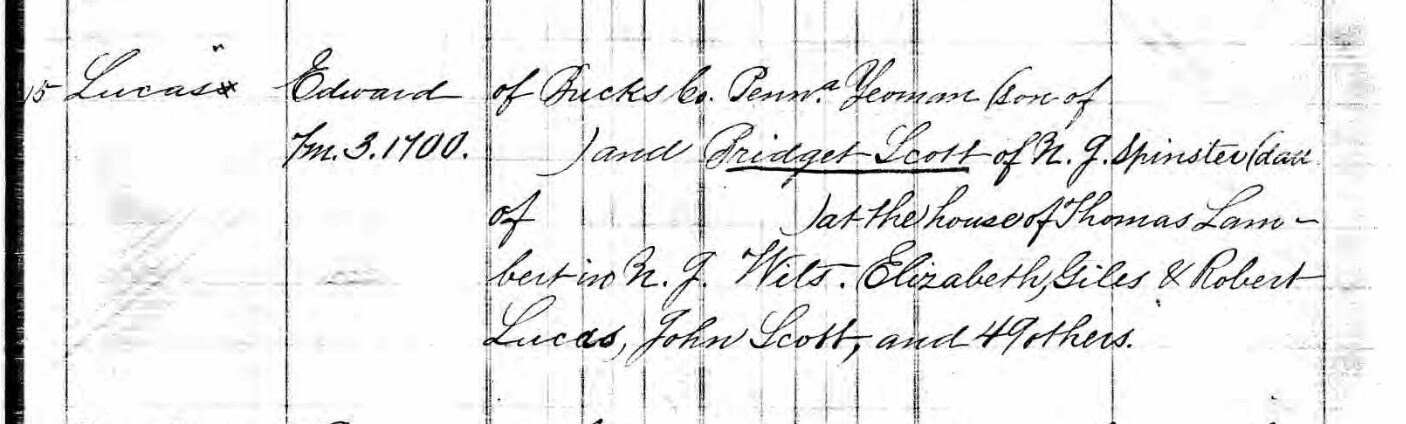 15 Lucas" x Edward of Bucks Co. Penna. Yeoman (son of
7m. 3. 1700. ) and Bridget Scott of N. J. Spinster (dau
of ) at the house of Thomas Lam-
bert in N. J. Wits. Elizabeth, Giles & Robert
Lucas, John Scott, and 49 others.